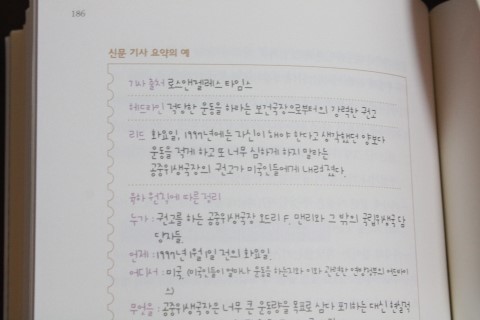 186
신문 기사 요약의 예
기사 출처 로스앤젤레스 타임스
헤드라인 적당한 운동을 하라는 보건국장으로부터의 강력한 권고
리드 화요일, 1999년에는 자신이 해야 한다고 생각했던 양보다
운동을 적게 하고 또 너무 심하게 하지 말라는
공중위생국장의 권고가 미국인들에게 내려졌다.
육하 원칙에 따른 정리
누가 : 권고를 하는 공중위생국장 오드리 F. 맨리와 그 밖의 국립위생국 담
당자들.
언제 : 1999년 1월 1일 전의 화요일.
어디서 : 미국. (미국인들이 얼마나 운동을 하는지와 이와 관련한
으)
무엇을 : 공중위생국장은 너무 큰 운동량을 목표로 삼다 포기하는 대신 현실적